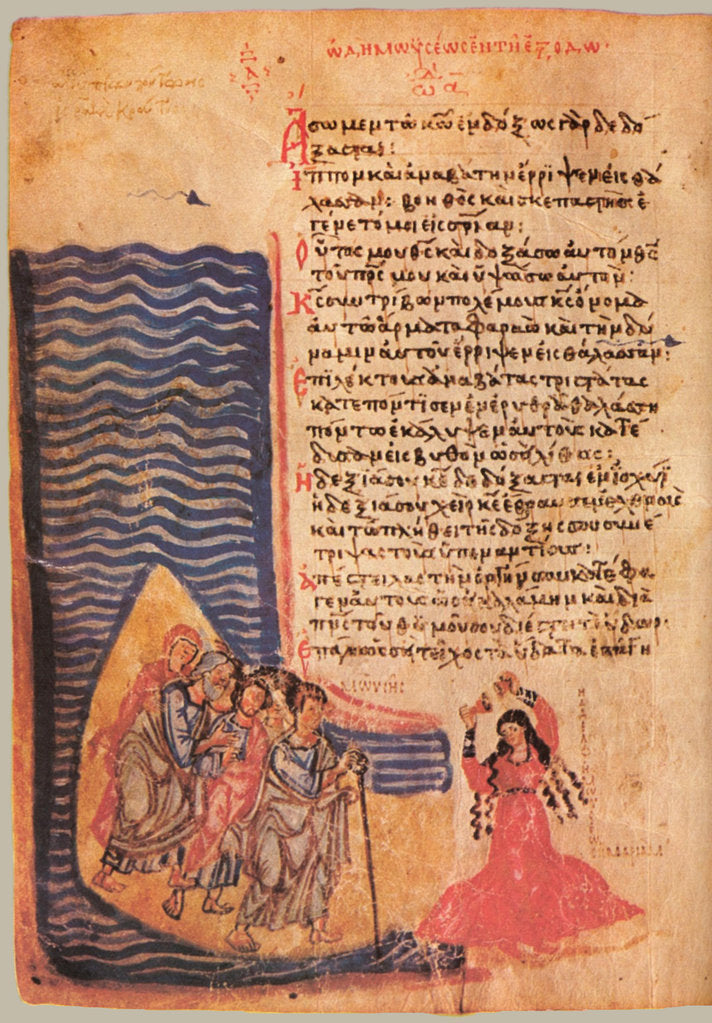 ὠδὴ Μωϋσέως ἐν τῇ ἐξόδω·
ὠδ α
Ἄσωμεν τῶ κω ἐνδόξως γὰρ δεδό
ξασται:
Ἵππον καὶ ἀναβάτην ἔρριψεν εἰς θά
λασσαν: βοηθὸς καὶ σκεπαστὴς ἐ
γένετό μοι εἰς σριαν:
Οὗτός μου θς καὶ δοξάσω αὐτὸν θς
τοῦ πρς μου καὶ ὑψώσω αὐτόν:
Κς συντρίβων πολέμους κς ὄνομα
αὐτῶ ἅρματα Φαραὼ καὶ τὴν δύ
ναμιν αὐτοῦ ἔρριψεν εἰς θάλασσαν:
Ἐπιλέκτους ἀναβάτας τριστάτας
κατεπόντισεν ἐν ἐρυθρᾶ θαλάσση
πόντω ἐκάλυψεν αὐτοὺς κατέ
δυσαν εἰς βυθὸν ὡσεὶ λίθος:
Ἡ δεξιά σου κε δεδόξασται ἐν ἰσχύϊ
ἡ δεξιά σου χεὶρ κε ἔθραυσεν ἐχθροὺς
καὶ τῶ πλήθει τῆς δόξης σου συνέ
τριψας τοὺς ὑπεναντίους:
Ἀπέστειλας τὴν ὀργήν σου κατέφα
γεν αὐτοὺς ὡς καλάμην καὶ διὰ
πνς τοῦ θυμοῦ σου διέστη τὸ ὕδωρ·
Ἐπάγη ὡσεὶ τεῖχος τὰ ὕδατα ἐπάγη
ΜΩΥCΗC